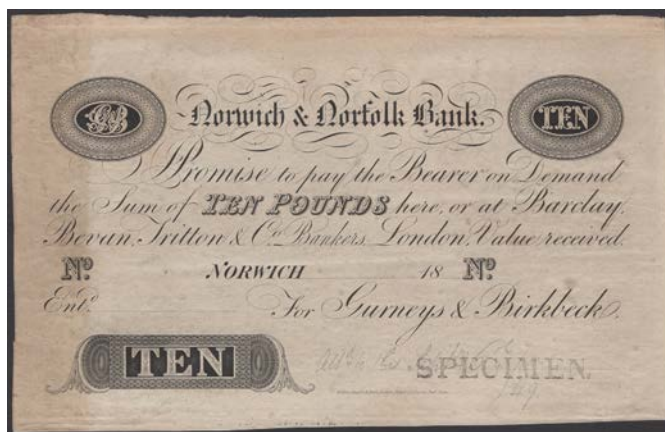 GB
Norwich & Norfolk Bank.
TEN
I Promise to pay the Bearer on Demand
the Sum of TEN POUNDS here, or at Barclay,
Bevan, Tritton & Co. Bankers, London, Value received.
No. NORWICH 18 No.
Entd. For Gurneys & Birkbeck.
TEN
SPECIMEN.